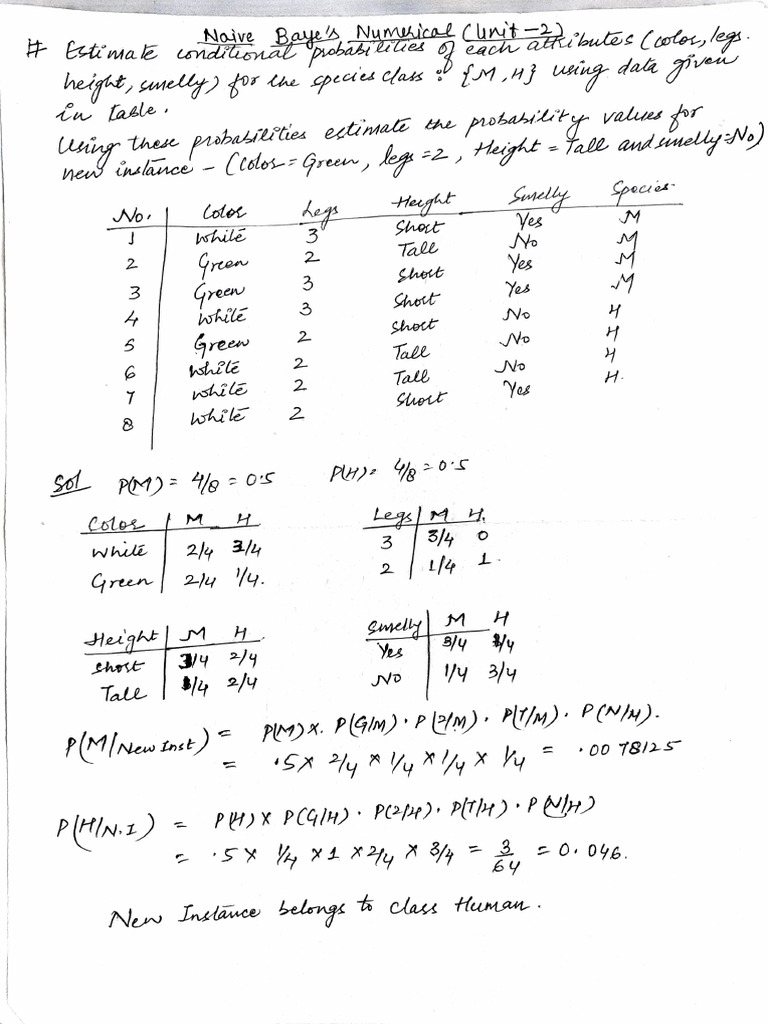 Naive Baye's Numerical (Unit-2)
# Estimate conditional probabilities of each attributes (color, legs.
height, smelly) for the species class : {M, H} using data given
in table.
Using these probabilities estimate the probability values for
new instance - (Color = Green, legs = 2, Height = Tall and smelly = No)
No. Color Legs Height Smelly Species
1 White 3 Short Yes M
2 Green 2 Tall No M
3 Green 3 Short Yes M
4 White 3 Short Yes M
5 Green 2 Short No H
6 White 2 Tall No H
7 White 2 Tall No H
8 White 2 Short Yes H.
Sol P(M) = 4/8 = 0.5 P(H) = 4/8 = 0.5
Color M H Legs M H.
White 2/4 3/4 3 3/4 0
Green 2/4 1/4. 2 1/4 1.
Height M H. Smelly M H
Short 3/4 2/4 Yes 3/4 1/4
Tall 1/4 2/4 No 1/4 3/4
P(M/New Inst) = P(M) x. P(G/M) · P(2/M) · P(T/M) · P(N/M).
= .5 x 2/4 x 1/4 x 1/4 x 1/4 = .0078125
P(H/N.I) = P(H) x P(G/H) · P(2/H) · P(T/H) · P(N/H)
= .5 x 1/4 x 1 x 2/4 x 3/4 = 3/64 = 0.046.
New Instance belongs to class Human.